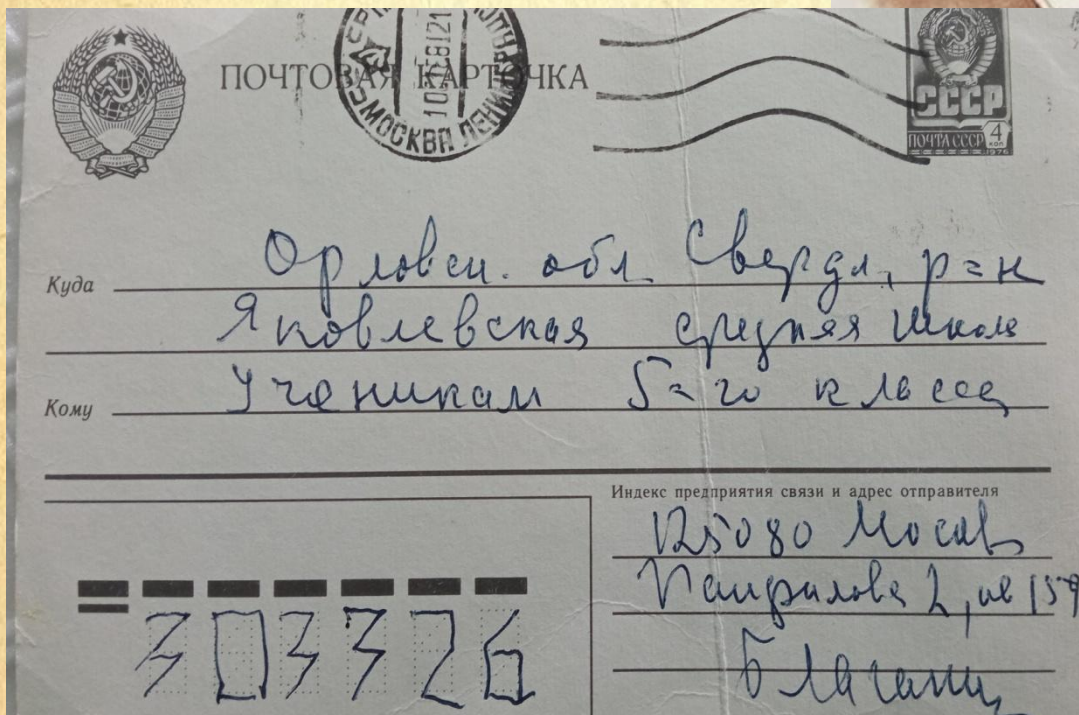 ПОЧТОВАЯ КАРТОЧКА
МОСКВА
СССР
ПОЧТА СССР 4 коп
1976
Куда Орловск. обл Свердл. р=н
Яковлевская средняя школа
Кому Ученикам 5=го класса
Индекс предприятия связи и адрес отправителя
125080 Москва
2, кв 159
303326